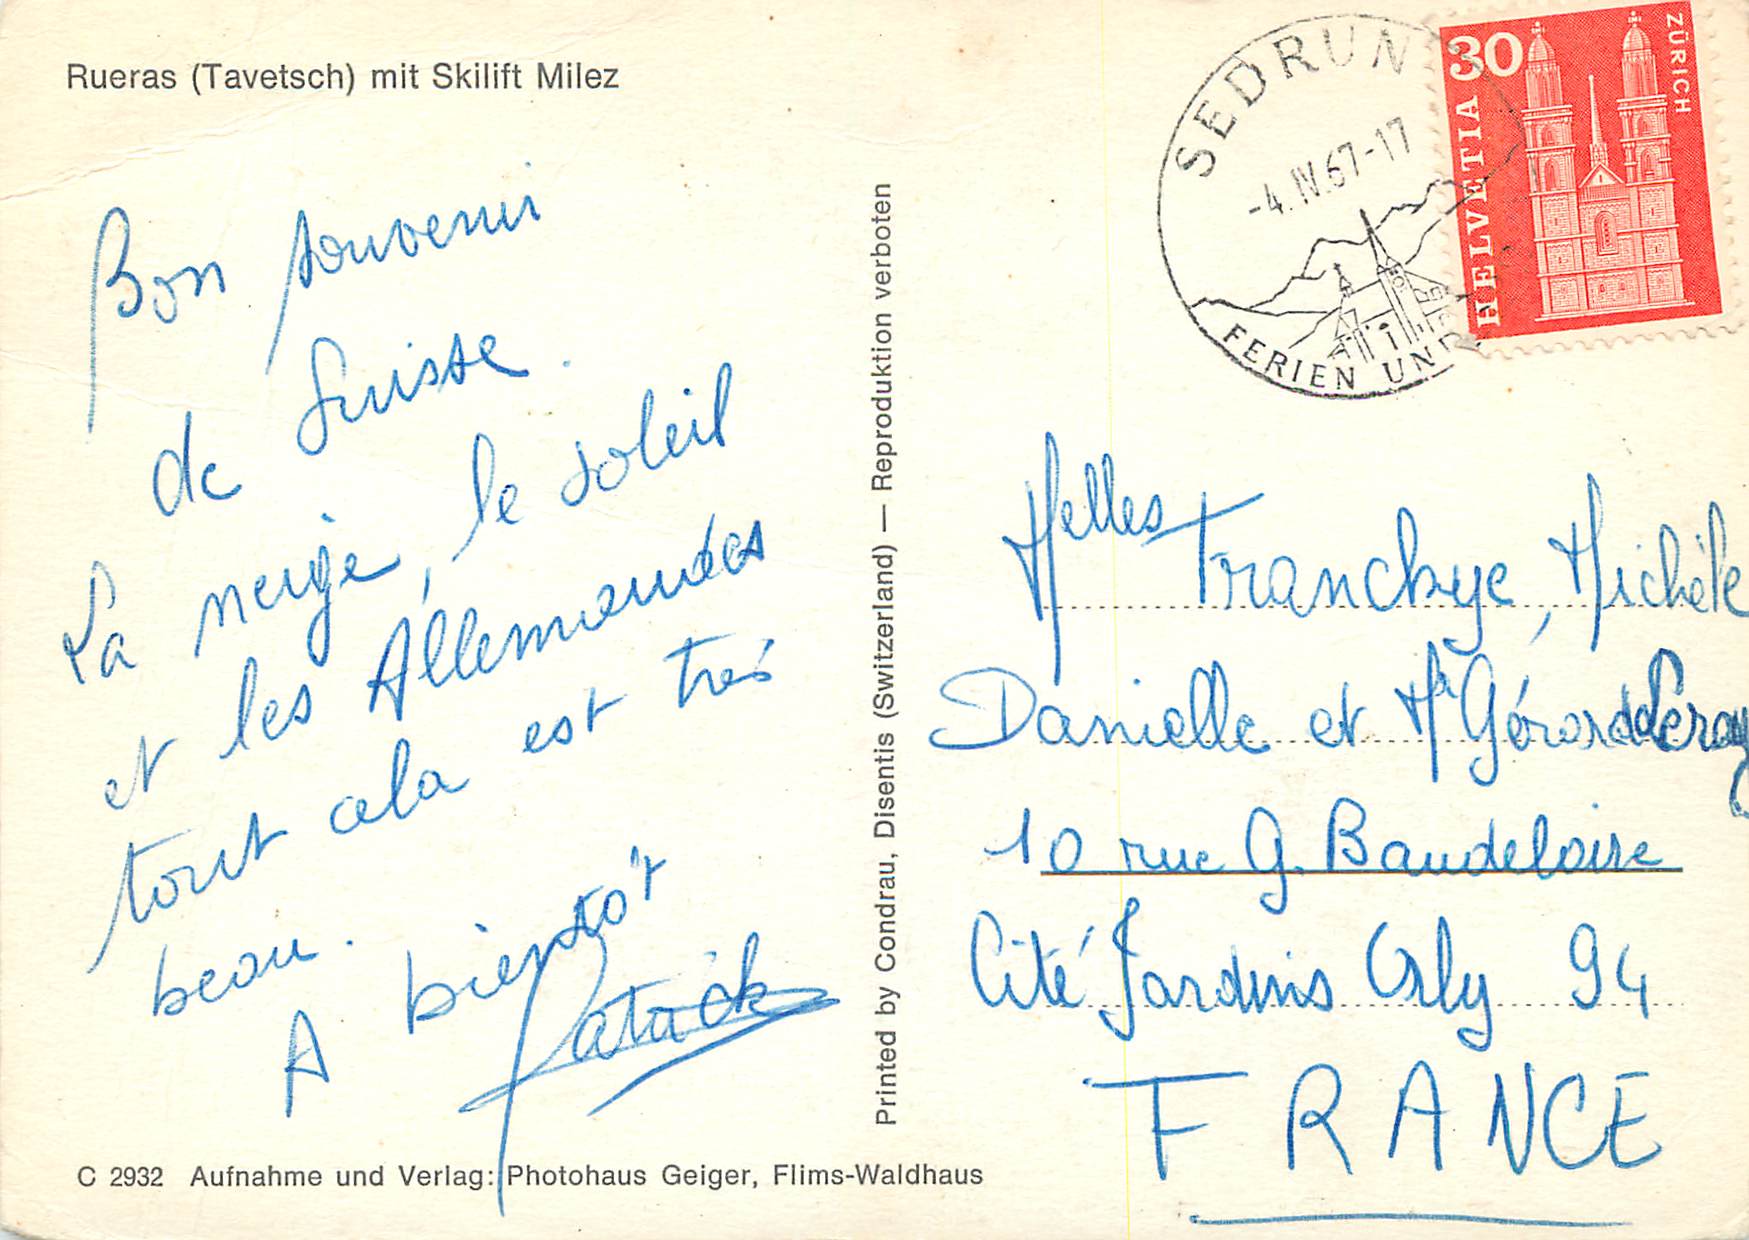 Rueras (Tavetsch) mit Skilift Milez
Bon souvenir
de Suisse.
La neige, le soleil
et les Allemandes
tout cela est très
beau.
A bientôt
Patrick
C 2932 Aufnahme und Verlag: Photohaus Geiger, Flims-Waldhaus
Printed by Condrau, Disentis (Switzerland) — Reproduktion verboten
SEDRUN
-4.IV.67-17
FERIEN UND
30
HELVETIA
ZÜRICH
Melles Franckye, Michèle
Danielle et Mr Gérard Leroy
10 rue G. Baudelaire
Cité Jardins Orly 94
FRANCE